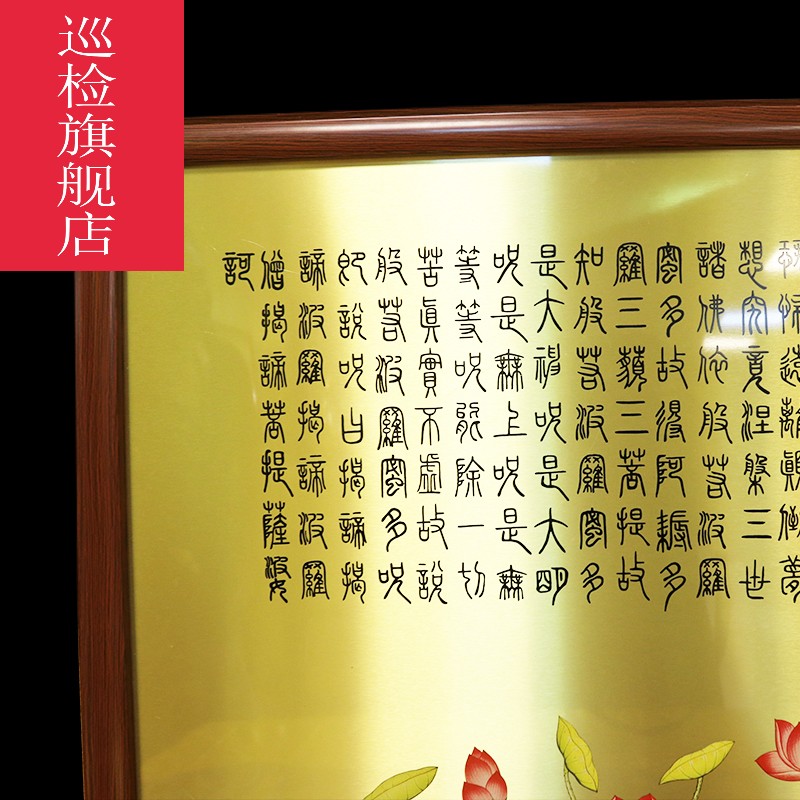 巡检旗舰店
恐怖遠離顛倒夢
想究竟涅槃三世
諸佛依般若波羅
密多故得阿耨多
羅三藐三菩提故
知般若波羅密多
是大神呪是大明
呪是無上呪是無
等等呪能除一切
苦眞實不虛故說
般若波羅密多呪
即說呪曰揭諦揭
諦波羅揭諦波羅
僧揭諦菩提薩婆
訶